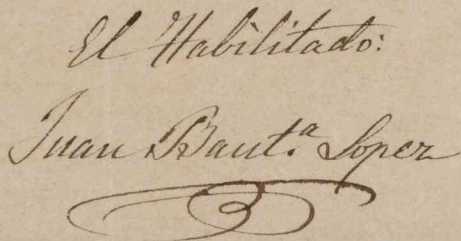 El Habilitado:
Juan Baut.ª Lopez